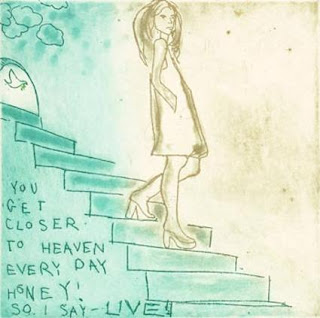 YOU
GET
CLOSER
TO HEAVEN
EVERY DAY
HONEY!
SO I SAY - LIVE!